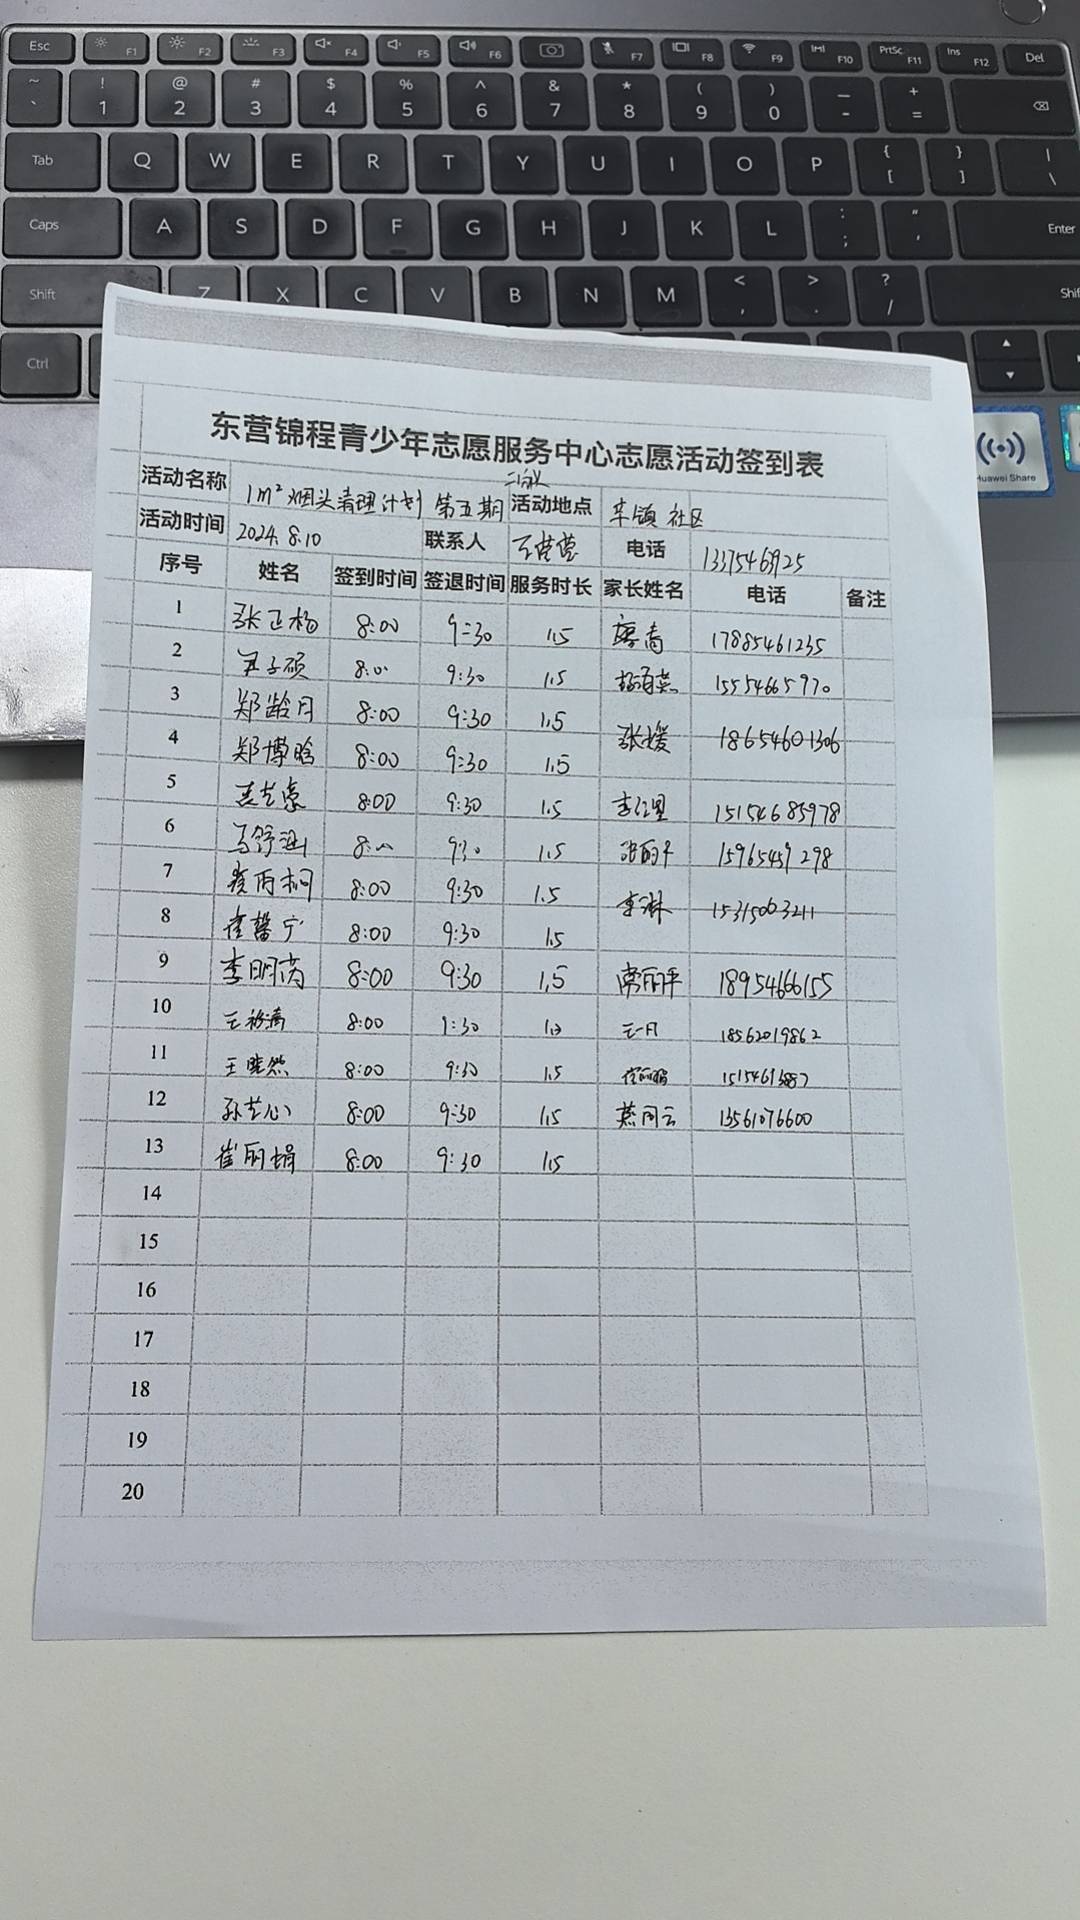 Esc F1 F2 F3 F4 F5 F6 F7 F8 F9 F10 PrtSc F11 Ins F12 Del
~ ! @ # $ % ^ & * ( ) — +
` 1 2 3 4 5 6 7 8 9 0 - = 
Tab Q W E R T Y U I O P { [ } ] | \
Caps A S D F G H J K L : ; " ' Enter
Shift Z X C V B N M < , > . ? / Shif
Ctrl
Huawei Share
东营锦程青少年志愿服务中心志愿活动签到表
活动名称 1m²烟头清理计划 第五期 活动地点 车镇社区
活动时间 2024.8.10 联系人 王莹莹 电话
序号 姓名 签到时间 签退时间 服务时长 家长姓名 电话 备注
1 张正杨 8:00 9:30 1.5 廖青 17885461235
2 8:00 9:30 1.5 15554665970
3 郑龄月 8:00 9:30 1.5 张媛 18654601306
4 郑博晗 8:00 9:30 1.5
5 8:00 9:30 1.5 15154685978
6 马舒涵 8:00 9:30 1.5 15965459298
7 崔丙桐 8:00 9:30 1.5 李琳 15315063211
8 崔馨宁 8:00 9:30 1.5
9 李明芮 8:00 9:30 1.5 常丽平 18954666155
10 8:00 9:30 18562019862
11 王晓然 8:00 9:30 1.5
12 孙艺心 8:00 9:30 1.5 13561076600
13 崔丽娟 8:00 9:30 1.5
14
15
16
17
18
19
20